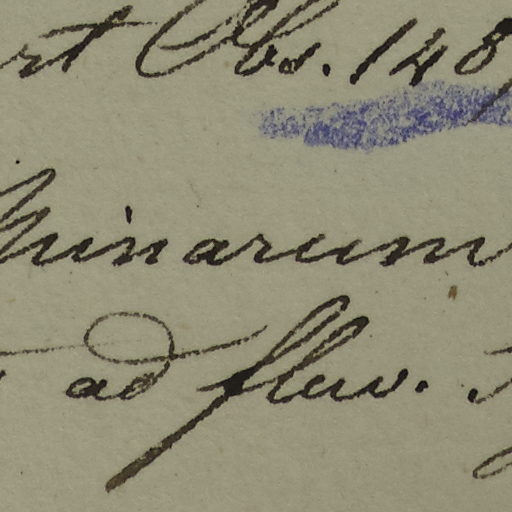 rt Obs. 148
Minarum
ad fluv.